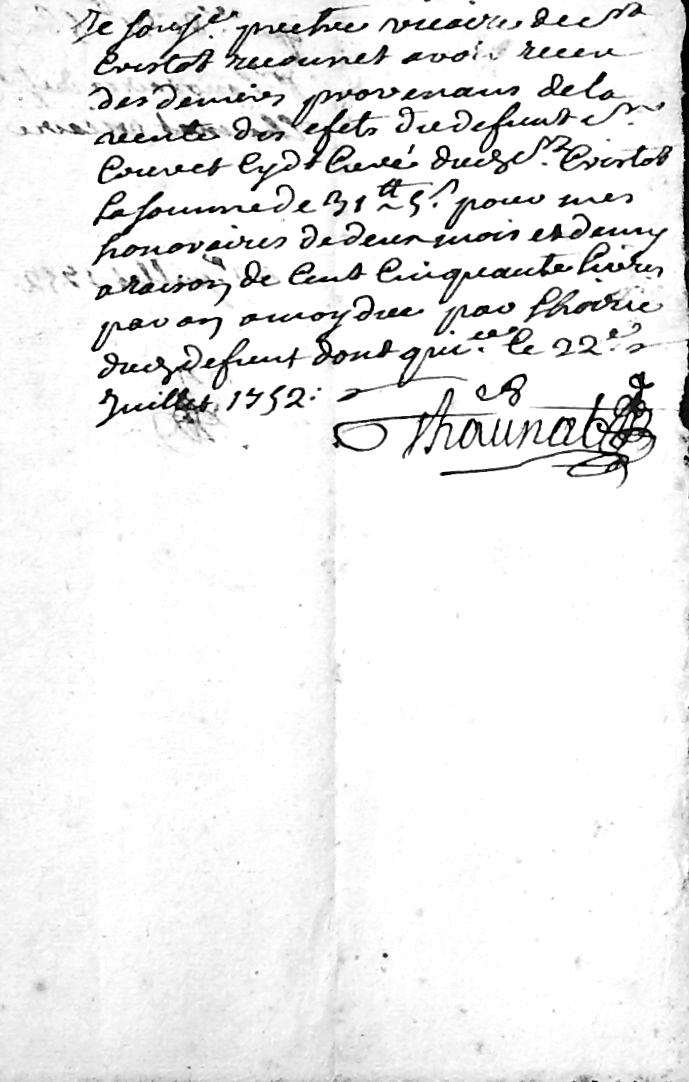 Je sous.é prestre vicaire de St
Cristot reconnet avoir receu
des deniers provenans de la
vente des efets du defunt Sr
Couvet Cydt Curé dud St Cristot
La somme de 31tt 5s pour mes
honoraires de deux mois et demy
a raison de Cent Cinquante livres
par an a moy due par Lhoirie
dud defunt dont qui.ce le 22e
Juillet 1752:
Thaunat